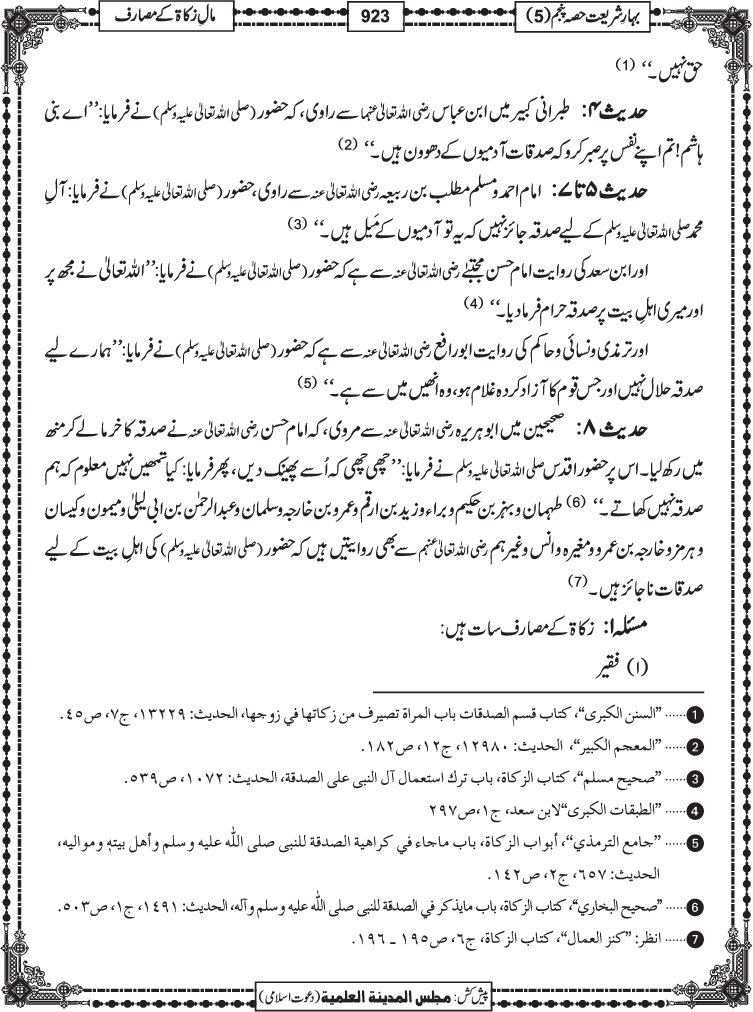 بہارِ شریعت حصہ پنجم (5)
923
مالِ زکاۃ کے مصارف
حق نہیں۔‘‘ (1)
حدیث ۴: طبرانی کبیر میں ابن عباس رضی اللہ تعالیٰ عنہما سے راوی، کہ حضور (صلی اللہ تعالیٰ علیہ وسلم) نے فرمایا: ’’اے بنی
ہاشم! تم اپنے نفس پر صبر کرو کہ صدقات آدمیوں کے دھوون ہیں۔‘‘ (2)
حدیث ۵ تا ۷: امام احمد و مسلم مطلب بن ربیعہ رضی اللہ تعالیٰ عنہ سے راوی، حضور (صلی اللہ تعالیٰ علیہ وسلم) نے فرمایا: آلِ
محمد صلی اللہ تعالیٰ علیہ وسلم کے لیے صدقہ جائز نہیں کہ یہ تو آدمیوں کے مَیل ہیں۔‘‘ (3)
اور ابن سعد کی روایت امام حسن مجتبےٰ رضی اللہ تعالیٰ عنہ سے ہے کہ حضور (صلی اللہ تعالیٰ علیہ وسلم) نے فرمایا: ’’اللہ تعالیٰ نے مجھ پر
اور میری اہلِ بیت پر صدقہ حرام فرما دیا۔‘‘ (4)
اور ترمذی و نسائی و حاکم کی روایت ابو رافع رضی اللہ تعالیٰ عنہ سے ہے کہ حضور (صلی اللہ تعالیٰ علیہ وسلم) نے فرمایا: ’’ہمارے لیے
صدقہ حلال نہیں اور جس قوم کا آزاد کردہ غلام ہو، وہ انھیں میں سے ہے۔‘‘ (5)
حدیث ۸: صحیحین میں ابوہریرہ رضی اللہ تعالیٰ عنہ سے مروی، کہ امام حسن رضی اللہ تعالیٰ عنہ نے صدقہ کا خرما لے کر منھ
میں رکھ لیا۔ اس پر حضور اقدس صلی اللہ تعالیٰ علیہ وسلم نے فرمایا: ’’چھی چھی کہ اُسے پھینک دیں، پھر فرمایا: کیا تمھیں نہیں معلوم کہ ہم
صدقہ نہیں کھاتے۔‘‘ (6) طہمان و بہز بن حکیم و براء و زید بن ارقم و عمرو بن خارجہ و سلمان و عبدالرحمٰن بن ابی لیلیٰ و میمون و کیسان
و ہرمز و خارجہ بن عمرو و مغیرہ و انس وغیرہم رضی اللہ تعالیٰ عنہم سے بھی روایتیں ہیں کہ حضور (صلی اللہ تعالیٰ علیہ وسلم) کی اہلِ بیت کے لیے
صدقات ناجائز ہیں۔ (7)
مسئلہ ۱: زکاۃ کے مصارف سات ہیں:
(۱) فقیر
1 ...... ”السنن الكبرى“، كتاب قسم الصدقات باب المراة تصيرف من زكاتها في زوجها، الحديث: ١٣٢٢٩، ج٧، ص٤٥.
2 ...... ”المعجم الكبير“، الحديث: ١٢٩٨٠، ج١٢، ص١٨٢.
3 ...... ”صحيح مسلم“، كتاب الزكاة، باب ترك استعمال آل النبى على الصدقة، الحديث: ١٠٧٢، ص٥٣٩.
4 ...... ”الطبقات الكبرى“ لابن سعد، ج١، ص٢٩٧
5 ...... ”جامع الترمذي“، أبواب الزكاة، باب ماجاء في كراهية الصدقة للنبى صلى الله عليه وسلم وأهل بيته ومواليه،
الحديث: ٦٥٧، ج٢، ص١٤٢.
6 ...... ”صحيح البخاري“، كتاب الزكاة، باب مايذكر في الصدقة للنبى صلى الله عليه وسلم وآله، الحديث: ١٤٩١، ج١، ص٥٠٣.
7 ...... انظر: ”كنز العمال“، كتاب الزكاة، ج٦، ص١٩٥ ـ ١٩٦.
پیش کش: مجلس المدینۃ العلمیۃ (دعوتِ اسلامی)